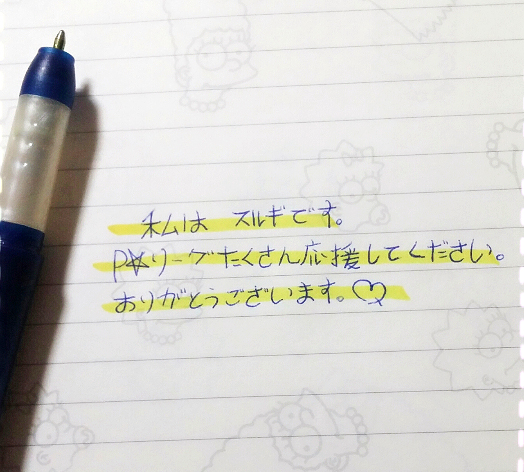 私は スルギです。
P☆リーグたくさん応援してください。
おりがとうございます。♡